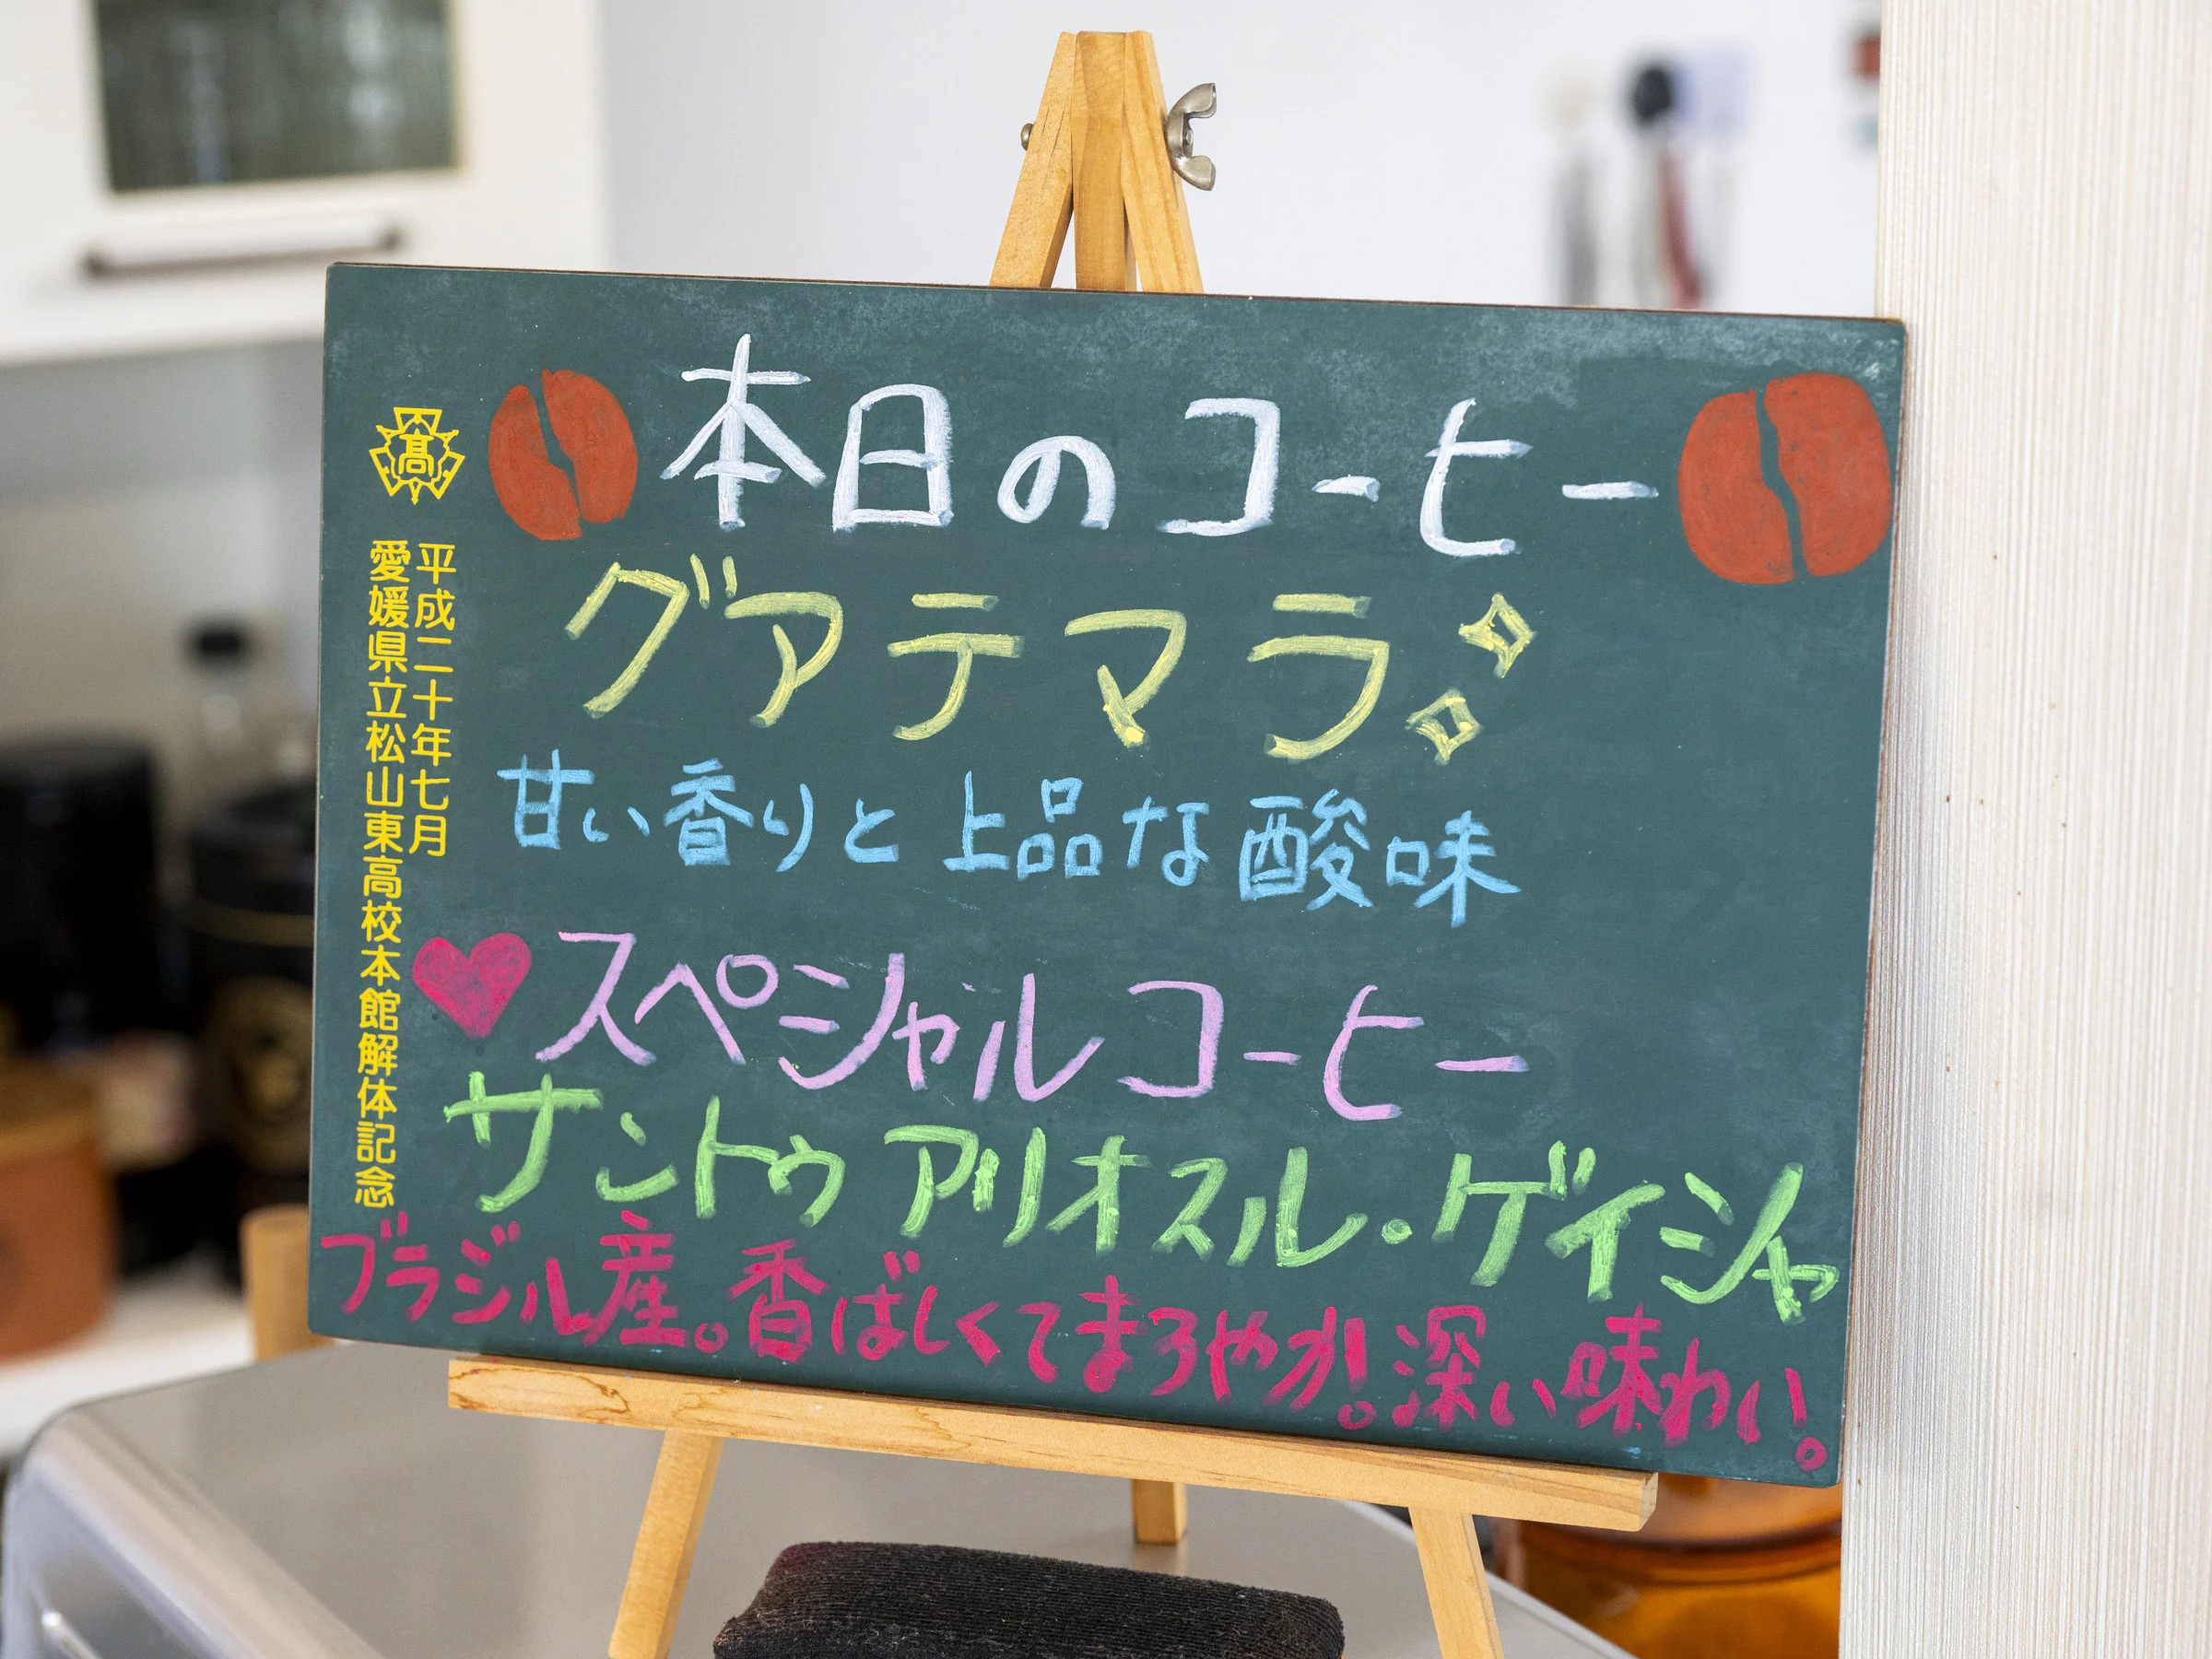 本日のコーヒー
グアテマラ
甘い香りと上品な酸味
スペシャルコーヒー
サントゥアリオスル・ゲイシャ
ブラジル産。香ばしくてまろやか!深い味わい。
高
平成二十年七月
愛媛県立松山東高校本館解体記念